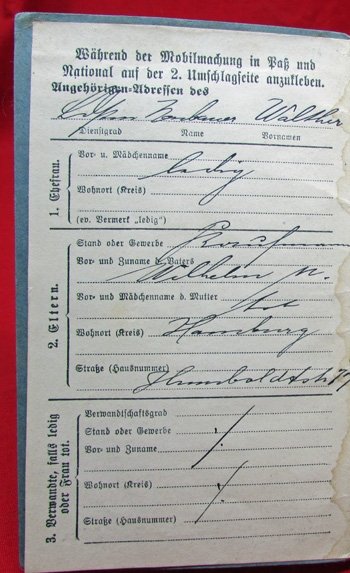 Während der Mobilmachung in Paß und
National auf der 2. Umschlagseite anzukleben.
Angehörigen-Adressen des
Walther
Dienstgrad Name Vornamen
1. Ehefrau.
Vor- u. Mädchenname
ledig
Wohnort (Kreis)
(ev. Vermerk „ledig")
2. Eltern.
Stand oder Gewerbe Kaufmann
Vor- und Zuname d. Vaters
Wilhelm N.
Vor- und Mädchenname d. Mutter
tot
Wohnort (Kreis) Hamburg
Straße (Hausnummer)
Humboldtstr.
3. Verwandte, falls ledig
oder Frau tot.
Verwandtschaftsgrad
Stand oder Gewerbe
Vor- und Zuname
Wohnort (Kreis)
Straße (Hausnummer)